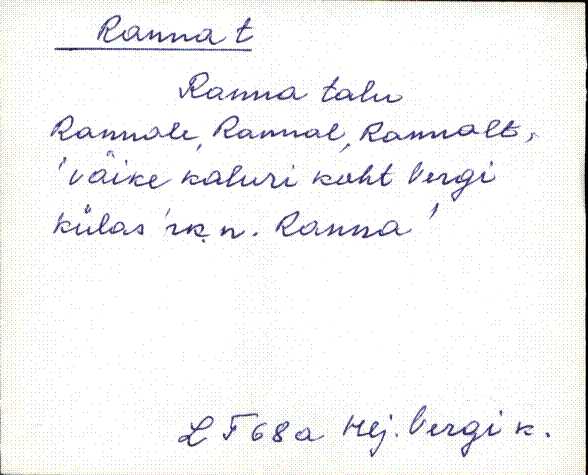 Ranna t
Ranna talu
Rannale, Rannal, Rannalt,
'väike kaluri koht Vergi
külas' rk. n. Ranna'
L F 68a Hlj. Vergi k.